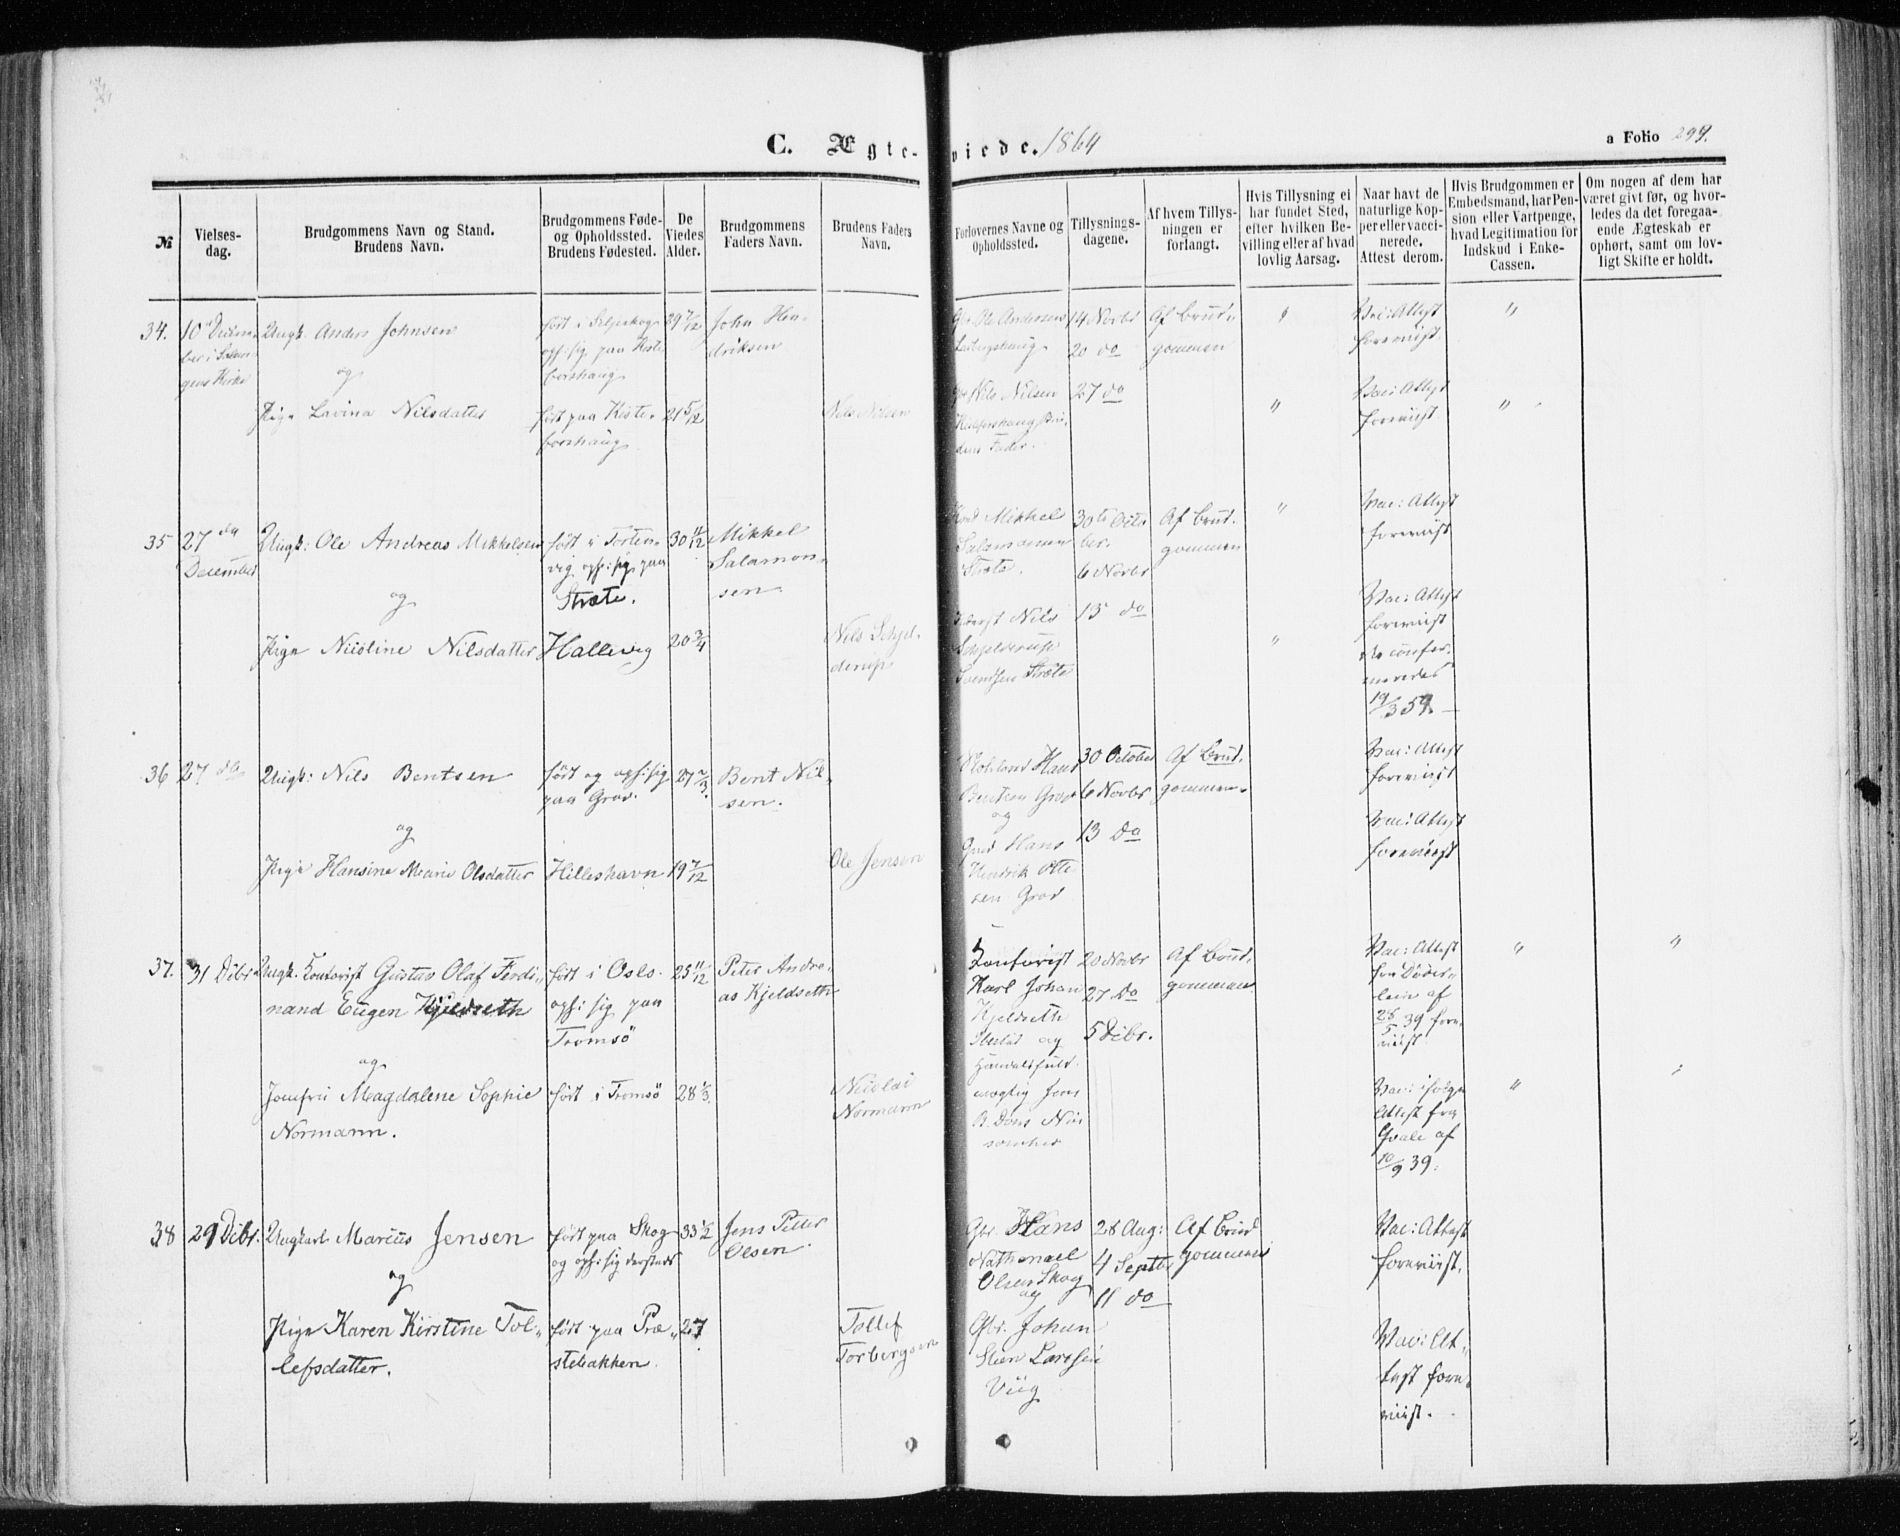 C. Ægte-viede. 1864
a Folio 299.
№
Vielses-
dag.
Brudgommens Navn og Stand.
Brudens Navn.
Brudgommens Føde-
og Opholdssted.
Brudens Fødested.
De
Viedes
Alder.
Brudgommens
Faders Navn.
Brudens Faders
Navn.
Forlovernes Navne og
Opholdssted.
Tillysnings-
dagene.
Af hvem Tillys-
ningen er
forlangt.
Hvis Tillysning ei
har fundet Sted,
efter hvilken Be-
villing eller af hvad
lovlig Aarsag.
Naar havt de
naturlige Kop-
per eller vacci-
nerede.
Attest derom.
Hvis Brudgommen er
Embedsmand, har Pen-
sion eller Vartpenge,
hvad Legitimation for
Indskud i Enke-
Cassen.
Om nogen af dem har
været givt før, og hvor-
ledes da det foregaa-
ende Ægteskab er
ophørt, samt om lov-
ligt Skifte er holdt.
34.
Ungk: Anders Johnsen
og
Pige Lavina Nilsdatter
opf: sig paa Keste
borshaug
født paa Keste-
borshaug
39 7/12
21 5/12
John Hen-
driksen
Nils Nilsen
Gbr Ole Andersen
Gbr Nils Nilsen
dens Fader.
14 Novbr
20 do
27 do
Af Brud-
gommen
Vac: Attest
foreviist
Vac: Attest
foreviist
35
27 do
December
Ungk: Ole Andreas Mikkelsen
og
Pige Nicoline Nilsdatter
født i Torten-
vig opf: sig paa
Stræte.
Hallevig
30 11/12
20 3/4
Mikkel
Salamon-
sen
Nils Schjel-
derup
Mikkel
Salamonsen
Stræte.
Nils
Schjelderup
Svendsen Stræte
30te Octo
ber.
6 Novbr
13 do
Af Brud.
gommen
Vac: Attest
foreviist
Vac: Attest
foreviist
confir-
meredes
19/3 59.
36
27 do
Ungk: Nils Bentsen
og
Pige Hansine Marie Olsdatter
født og opf: sig
paa Grov.
Hilleshavn
27 2/3
19 7/12
Bent Nil-
sen.
Ole Jensen
Hans
Bentsen Grov
og
Hans
Hendrik Otte
sen Grov
30 October
6 Novbr
13 do
Af Brud.
gommen.
Vac: Attest
foreviist
Vac: Attest
foreviist
37.
31 Dcbr
Ungk. Kontorist Gustav Olaf Ferdi-
nand Eugen Kjeldseth
og
Jomfru Magdalene Sophie
Normann.
født i Oslo.
opf: sig paa
Tromsö
født i Tromsö
25 11/12
28 1/3
Peter Andre-
as Kjeldseth
Nicolai
Normann
Kontorist
Karl Johan
Kjeldseth
og
Handelsfuld-
mægtig Jens
20 Novbr
27 Do
5 Dcbr.
Af Brud.
gommen.
Vac: Attest
fra Döder-
lein af
28/5 39 fore-
viist
Vac: ifølge
Attest fra
Qvale af
10/9 39.
38
29 Dcbr.
Ungkarl Marcus Jensen
og
Pige Karen Kirstine Tol-
lefsdatter.
født paa Skog
og opf: sig dersteds
født paa Præ-
stebakken.
33 1/2
27
Jens Petter
Olsen
Tollef
Torbergsen
Gbr. Hans
Nathanael
Olsen Skog
og
Gbr. Johan
Steen Larssen
Viig
28 Aug:
4 Septbr
11 do
Af Brud
gommen
Vac: Attest
foreviist.
Vac: At-
test fore-
viist.